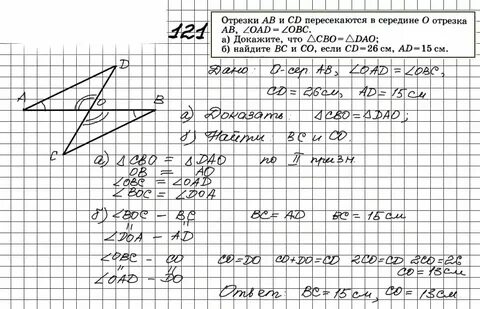 121
Отрезки AB и CD пересекаются в середине O отрезка
AB, ∠OAD = ∠OBC.
а) Докажите, что △CBO = △DAO;
б) найдите BC и CO, если CD = 26 см, AD = 15 см.
D
A
O
B
C
Дано: O-сер AB, ∠OAD = ∠OBC,
CD = 26см, AD = 15см
а) Доказать: △CBO = △DAO;
б) Найти BC и CO.
а) △CBO = △DAO по II призн.
OB = AO
∠OBC = ∠OAD
∠BOC = ∠DOA
б) ∠BOC - BC BC = AD BC = 15см
" "
∠DOA - AD
∠OBC - CO CO = DO CO + DO = CD 2CO = CD 2CO = 26
" " CO = 13см
∠OAD - DO
Ответ: BC = 15см, CO = 13см